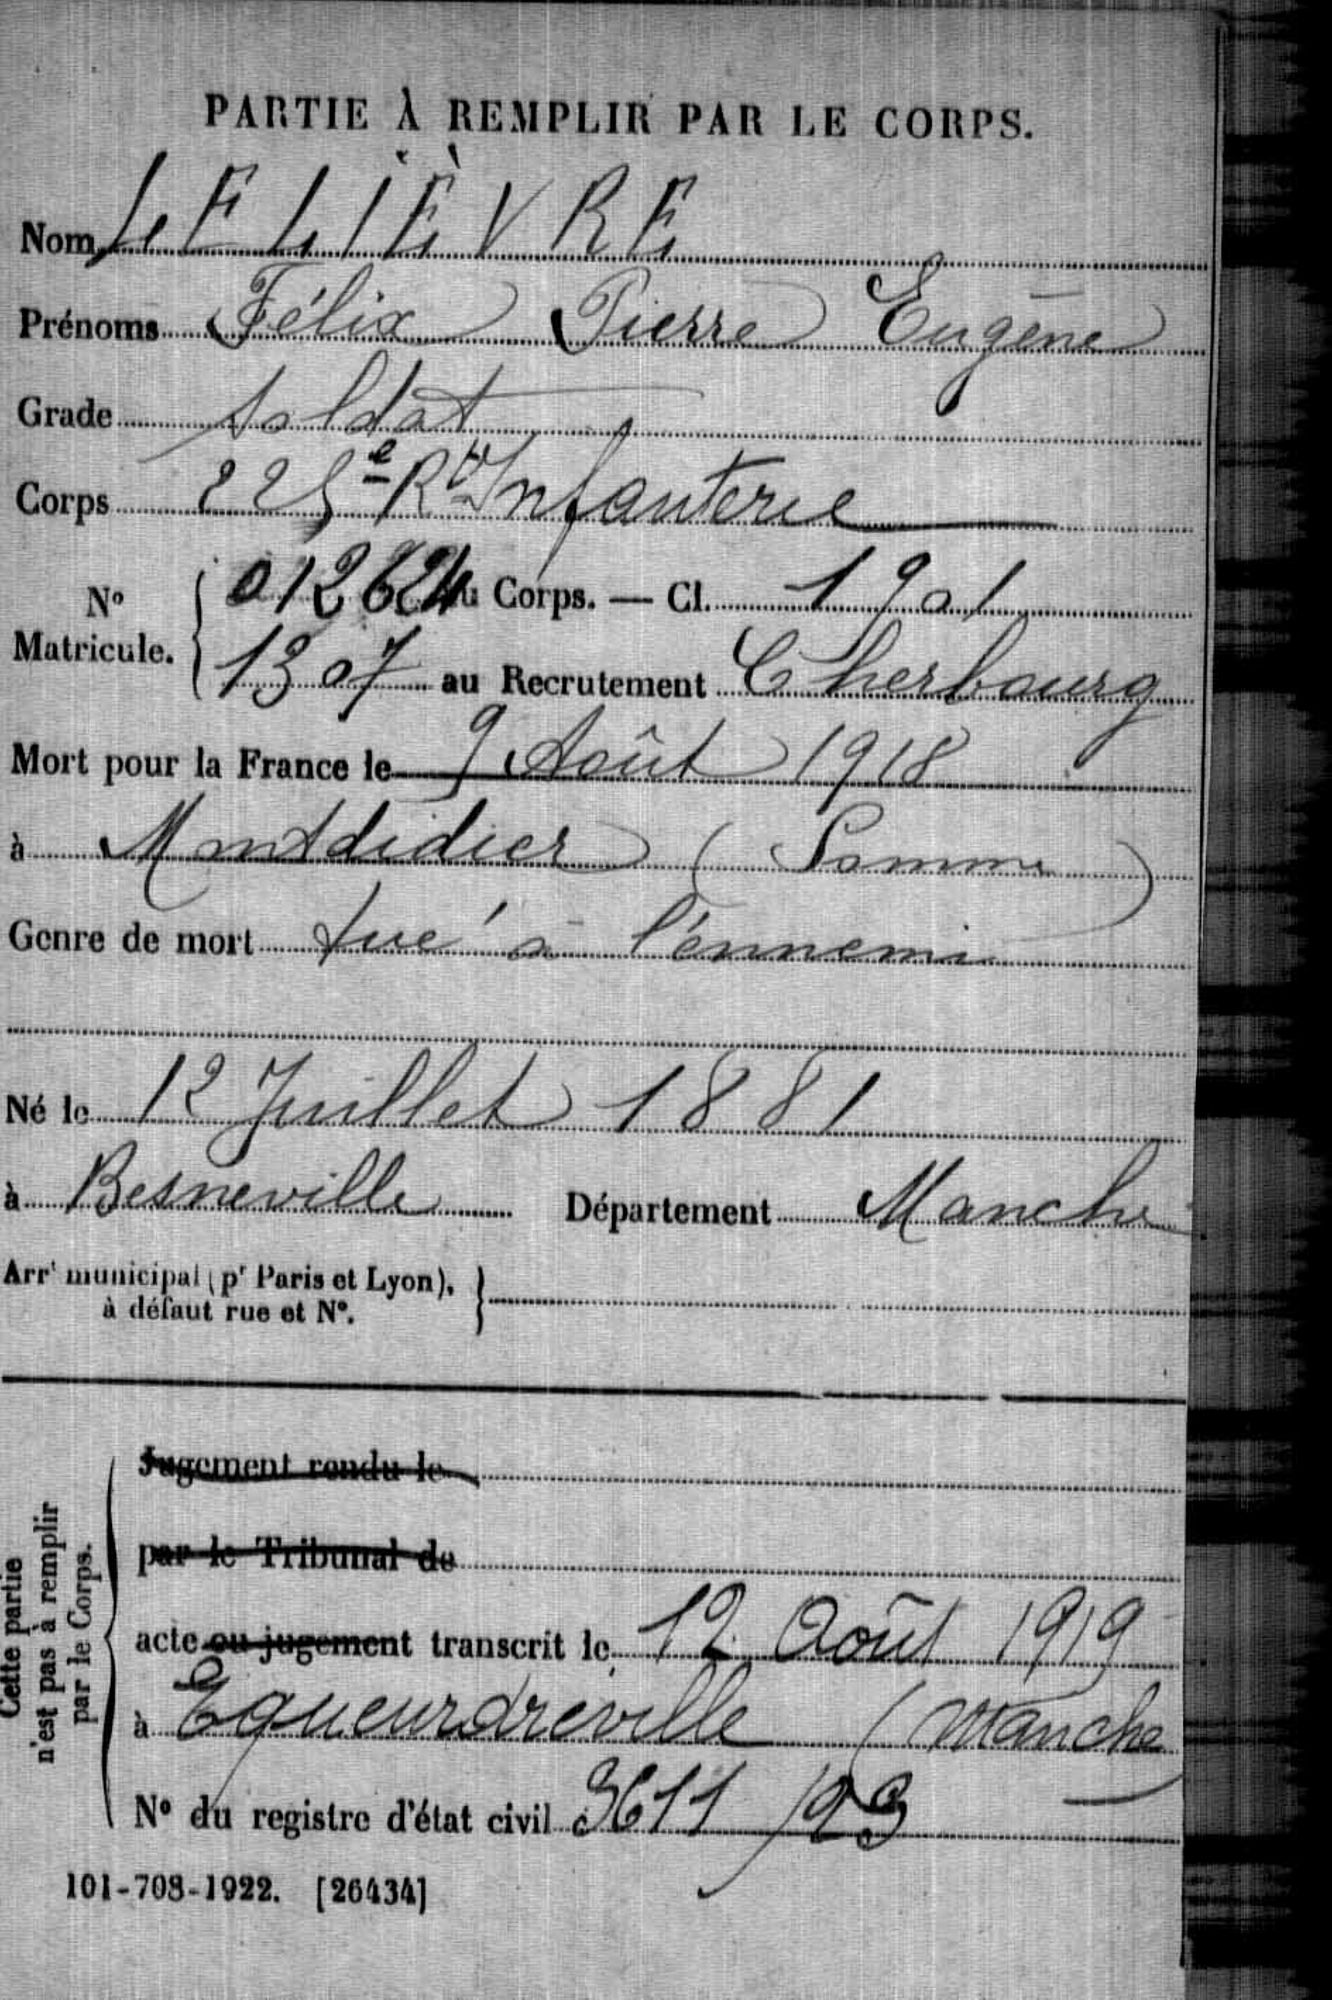 PARTIE À REMPLIR PAR LE CORPS.
Nom LELIÈVRE
Prénoms Félix Pierre Eugène
Grade soldat
Corps 225e Rt Infanterie
N° Matricule. { 012624 au Corps. — Cl. 1901
1307 au Recrutement Cherbourg
Mort pour la France le 9 Août 1918
à Montdidier (Somme)
Genre de mort tué à l'ennemi
Né le 12 Juillet 1881
à Besneville Département Manche
Arrt municipal (pr Paris et Lyon), }
à défaut rue et N°.
Cette partie
n'est pas à remplir
par le Corps.
Jugement rendu le
par le Tribunal de
acte ou jugement transcrit le 12 Août 1919
à Equeurdreville (Manche
N° du registre d'état civil 3611/23
101-708-1922. [26434]